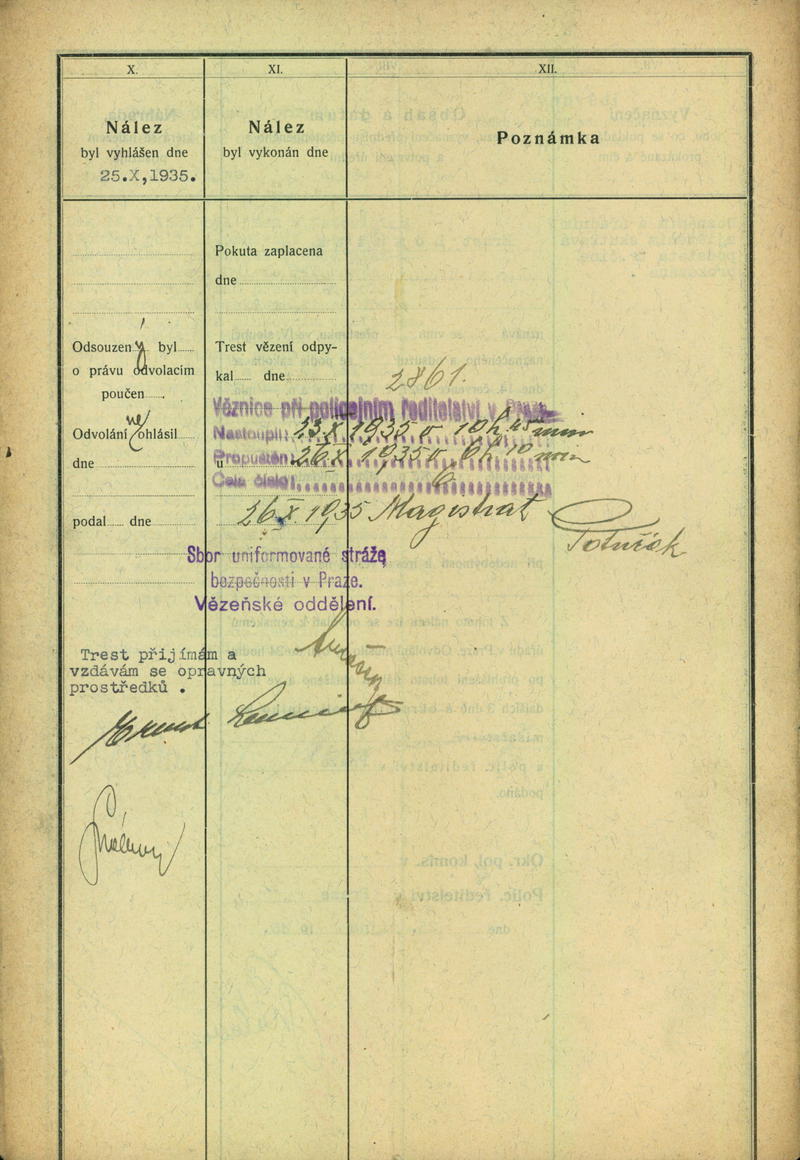 X.
Nález
byl vyhlášen dne
25.X,1935.
Odsouzený byl
o právu odvolacím
poučen
Odvolání neohlásil
dne
podal dne
XI.
Nález
byl vykonán dne
Pokuta zaplacena
dne
Trest vězení odpy-
kal dne
XII.
Poznámka
2861.
Věznice při policejním ředitelství v Praze
Nastoupil: X 1935 v 10 h 45 min
Propuštěn: 26 X 1935 v 6 h 10 min
Cela číslo: 6
u
26.X. 1935 Magistrat
Sbor uniformované stráže
bezpečnosti v Praze.
Vězeňské oddělení.
Trest přijímám a
vzdávám se opravných
prostředků .
Ernst